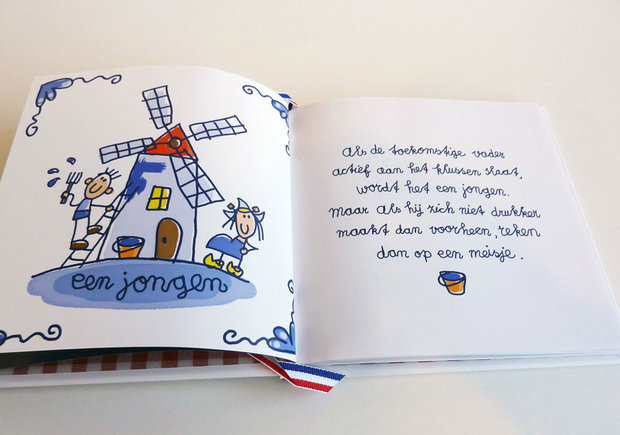 een jongen
Als de toekomstige vader
actief aan het klussen slaat,
wordt het een jongen.
Maar als hij zich niet drukker
maakt dan voorheen, reken
dan op een meisje.